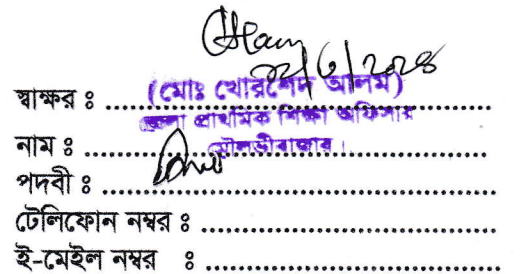 ২২/৬/২০২৪
স্বাক্ষর ঃ ....................
(মোঃ খোরশেদ আলম)
জেলা প্রাথমিক শিক্ষা অফিসার
নাম ঃ ....................
মৌলভীবাজার।
পদবী ঃ ....................
টেলিফোন নম্বর ঃ ....................
ই-মেইল নম্বর ঃ ....................